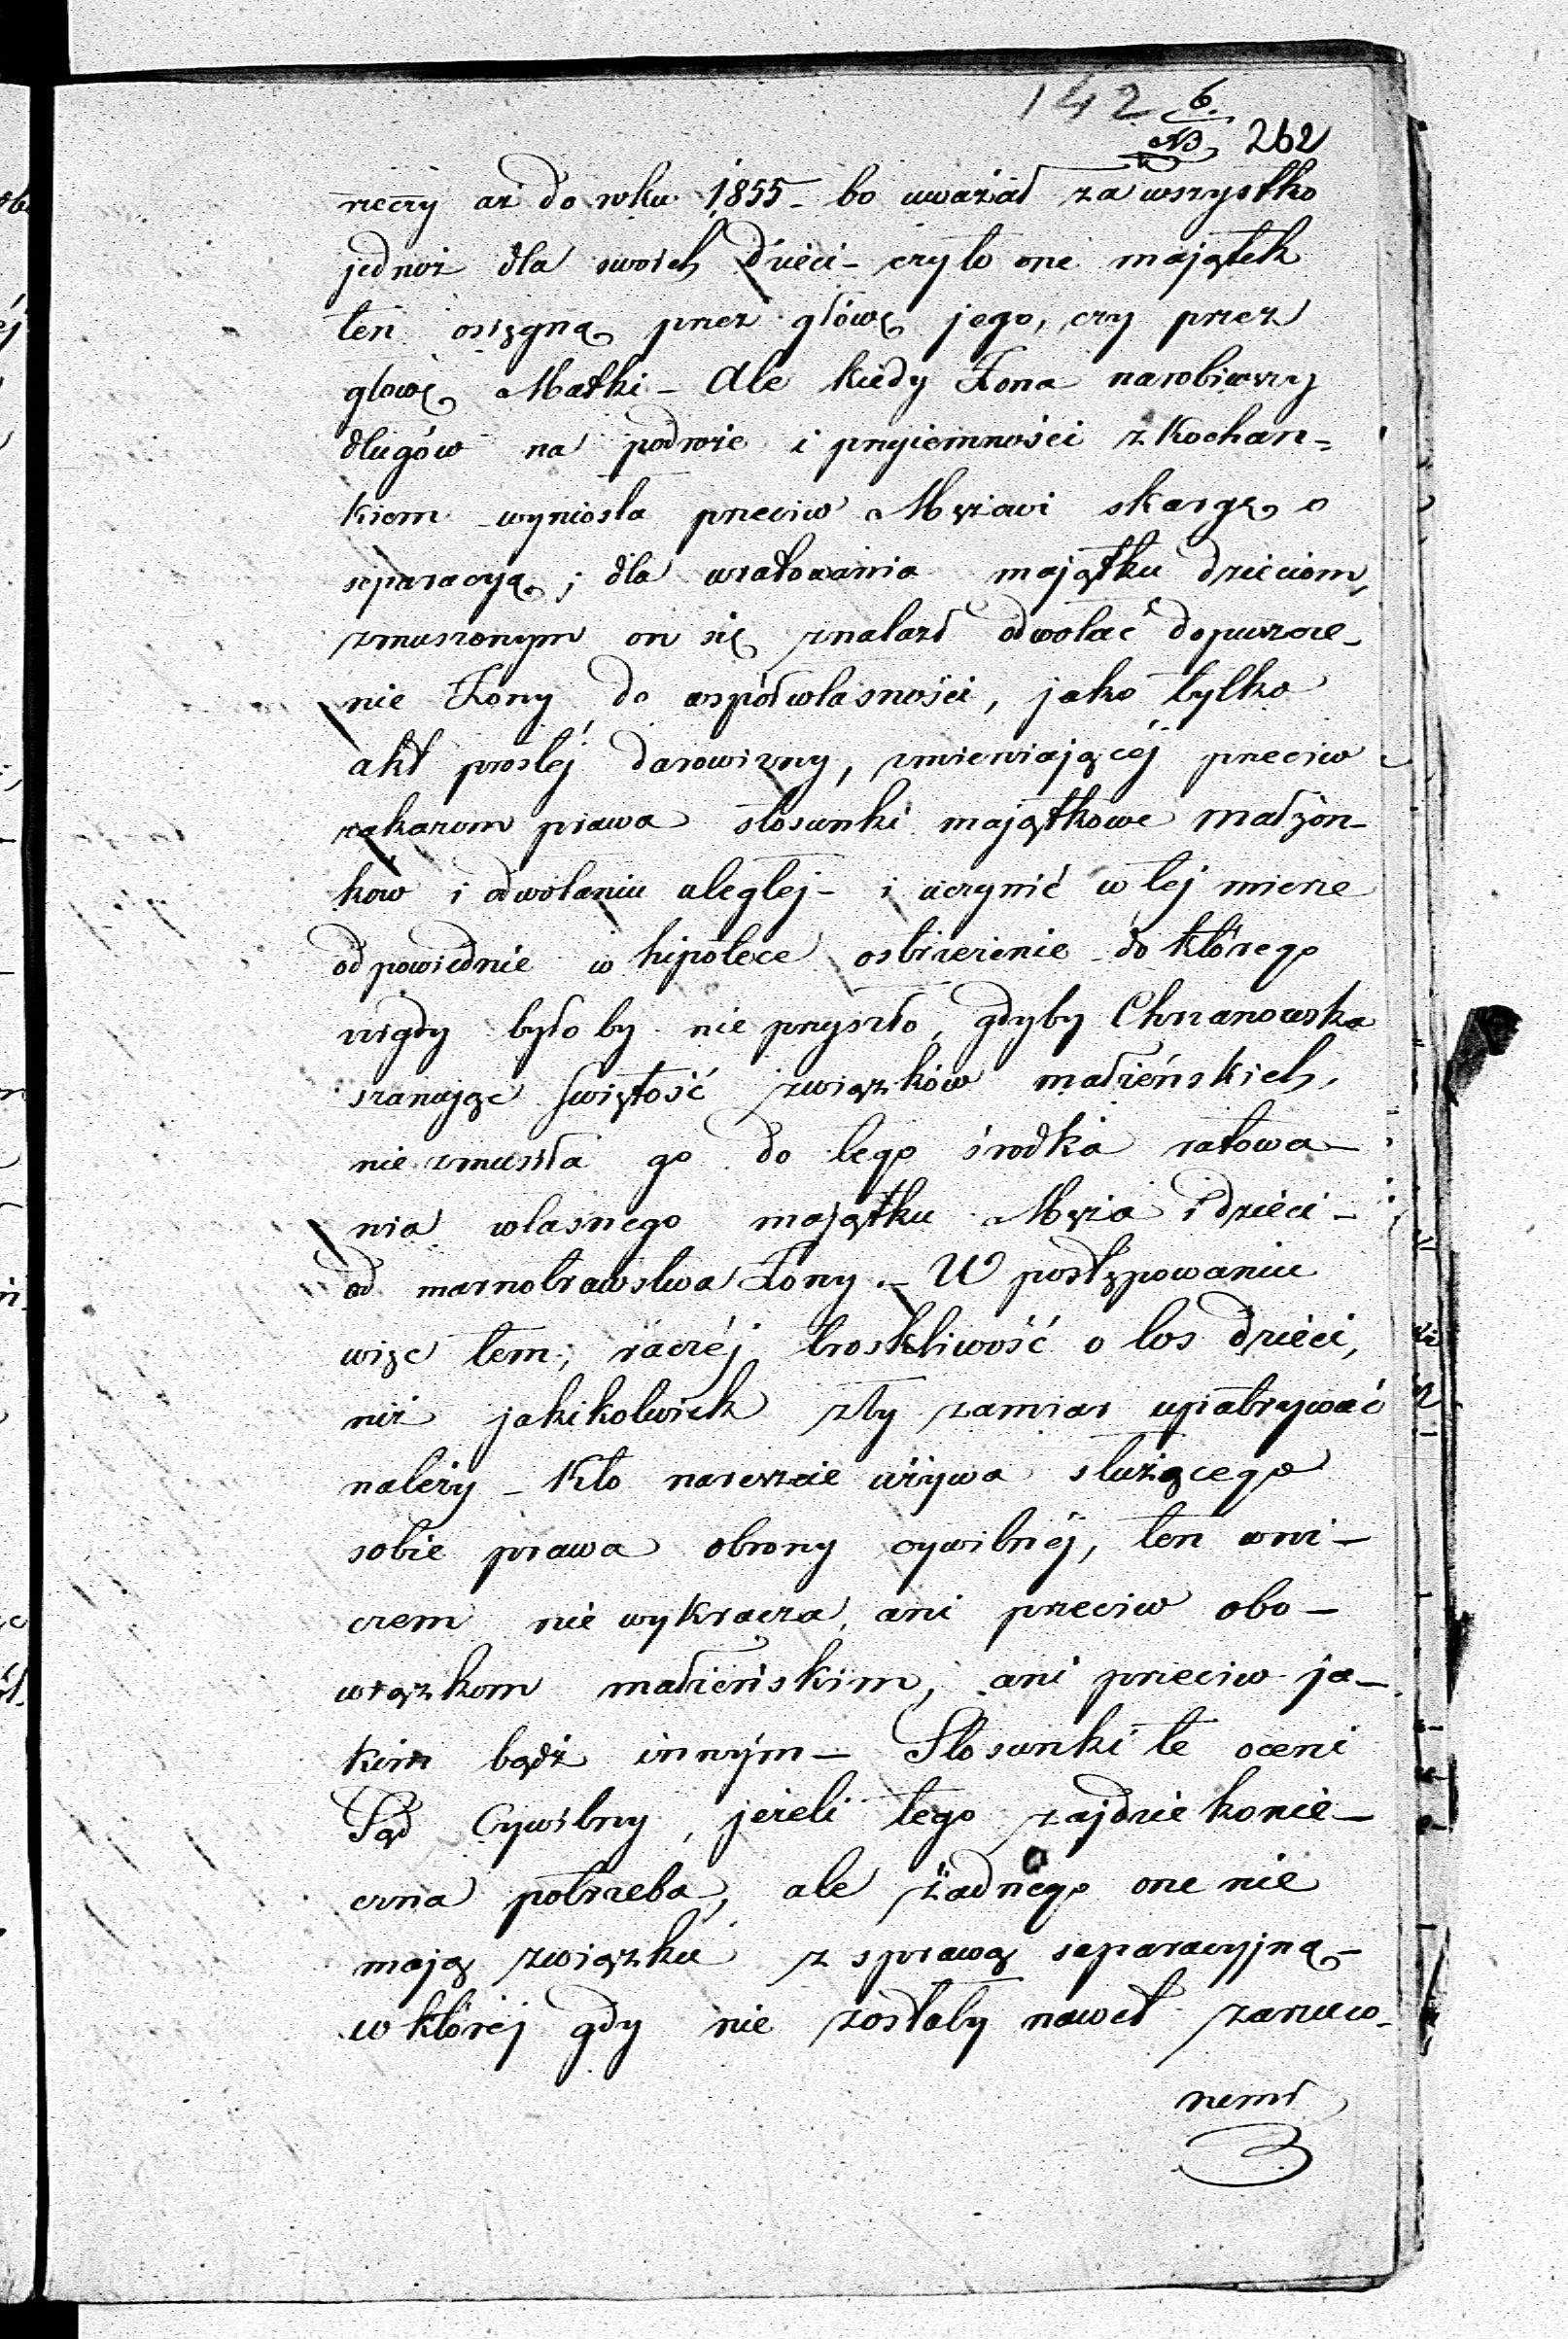 142 6. NB 262
rzeczy aż do roku 1855 - bo uważał za wszystko
jednoż dla swoich dzieci - czy to one majątek
ten osięgną przez głowę jego, czy przez
głowę Matki - Ale kiedy Żona narobiwszy
długów na podróże i przyiemności z Kochan-
kiem wyniosła przeciw Mężowi skargę o
separacyą; dla uratowania majątku dzieciom,
zmuszonym on się znalazł odwołać dopuszcze-
nie Żony do współwłasności, jako tylko
akt prostéj darowizny, zmieniającéj przeciw
zakazom prawa stosunki majątkowe małżon-
ków i odwołaniu uległej - i uczynić w tej mierze
odpowiednie w hipotece ostrzeżenie do którego
nigdy było by nie przyszło, gdyby Chrzanowska
szanując świętość związków małżeńskich,
nie zmusiła go do tego środka ratowa-
nia własnego majątku Męża i dzieci -
od marnotrawstwa Żony. - W postępowaniu
więc tem, raczéj troskliwość o los dzieci,
niż jakikolwiek zły zamiar upatrywać
należy - Kto nareszcie używa służącego
sobie prawa obrony cywilnéj, ten w ni-
czem nie wykracza, ani przeciw obo-
wiązkom małżeńskim, ani przeciw ja-
kim bądź innym - Stosunki te oceni
Sąd Cywilny, jeżeli tego zajdzie konie-
czna potrzeba, ale żadnego one nie
mają związku z sprawą separacyjną -
w któréj gdy nie zostały nawet zarzuco-
nemi